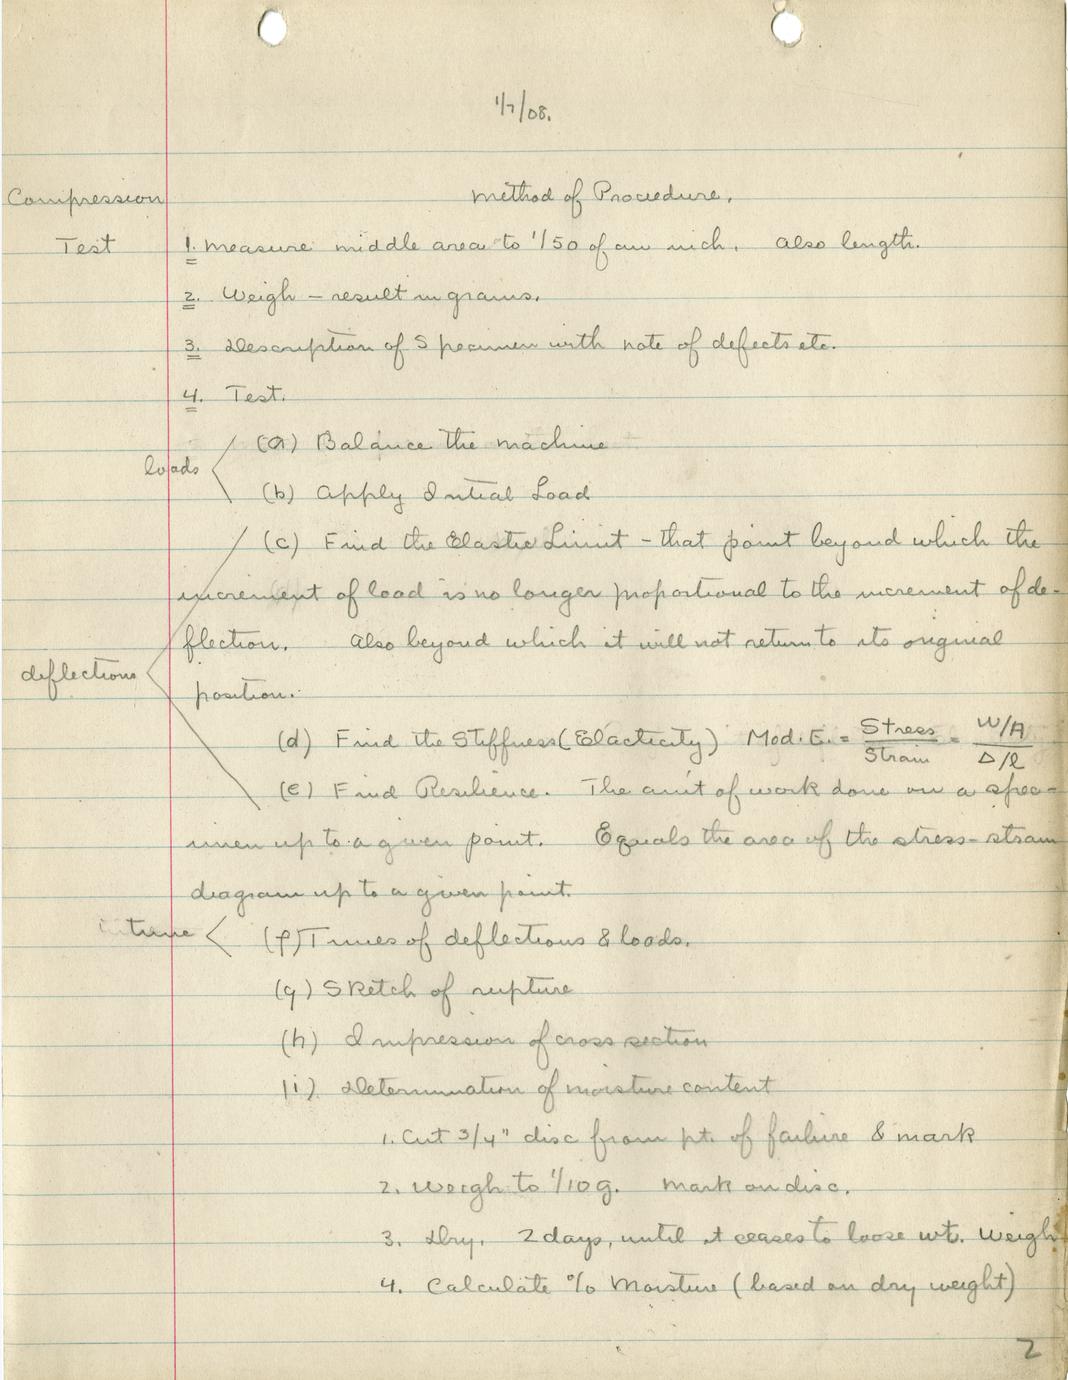 1/7/08.
Compression Method of Procedure.
Test 1. Measure middle area to 1/50 of an inch. Also length.
2. Weigh – result in grams.
3. Description of Specimen with note of defects etc.
4. Test.
(a) Balance the machine
loads
(b) Apply Initial Load
(c) Find the Elastic Limit – that point beyond which the
increment of load is no longer proportional to the increment of de-
flection. Also beyond which it will not return to its original
deflections
position.
(d) Find the Stiffness (Elacticity) Mod. E. = Stress/Strain = W/A / Δ/l
(e) Find Resilience. The am't of work done on a spec-
imen up to a given point. Equals the area of the stress-strain
diagram up to a given point.
time (f) Times of deflections & loads.
(g) Sketch of rupture
(h) Impression of cross section
(i) Determination of moisture content
1. Cut 3/4" disc from pt. of failure & mark
2. Weigh to 1/10 g. Mark on disc.
3. Dry. 2 days, until it ceases to loose wt. Weigh
4. Calculate % Moisture (based on dry weight)
2